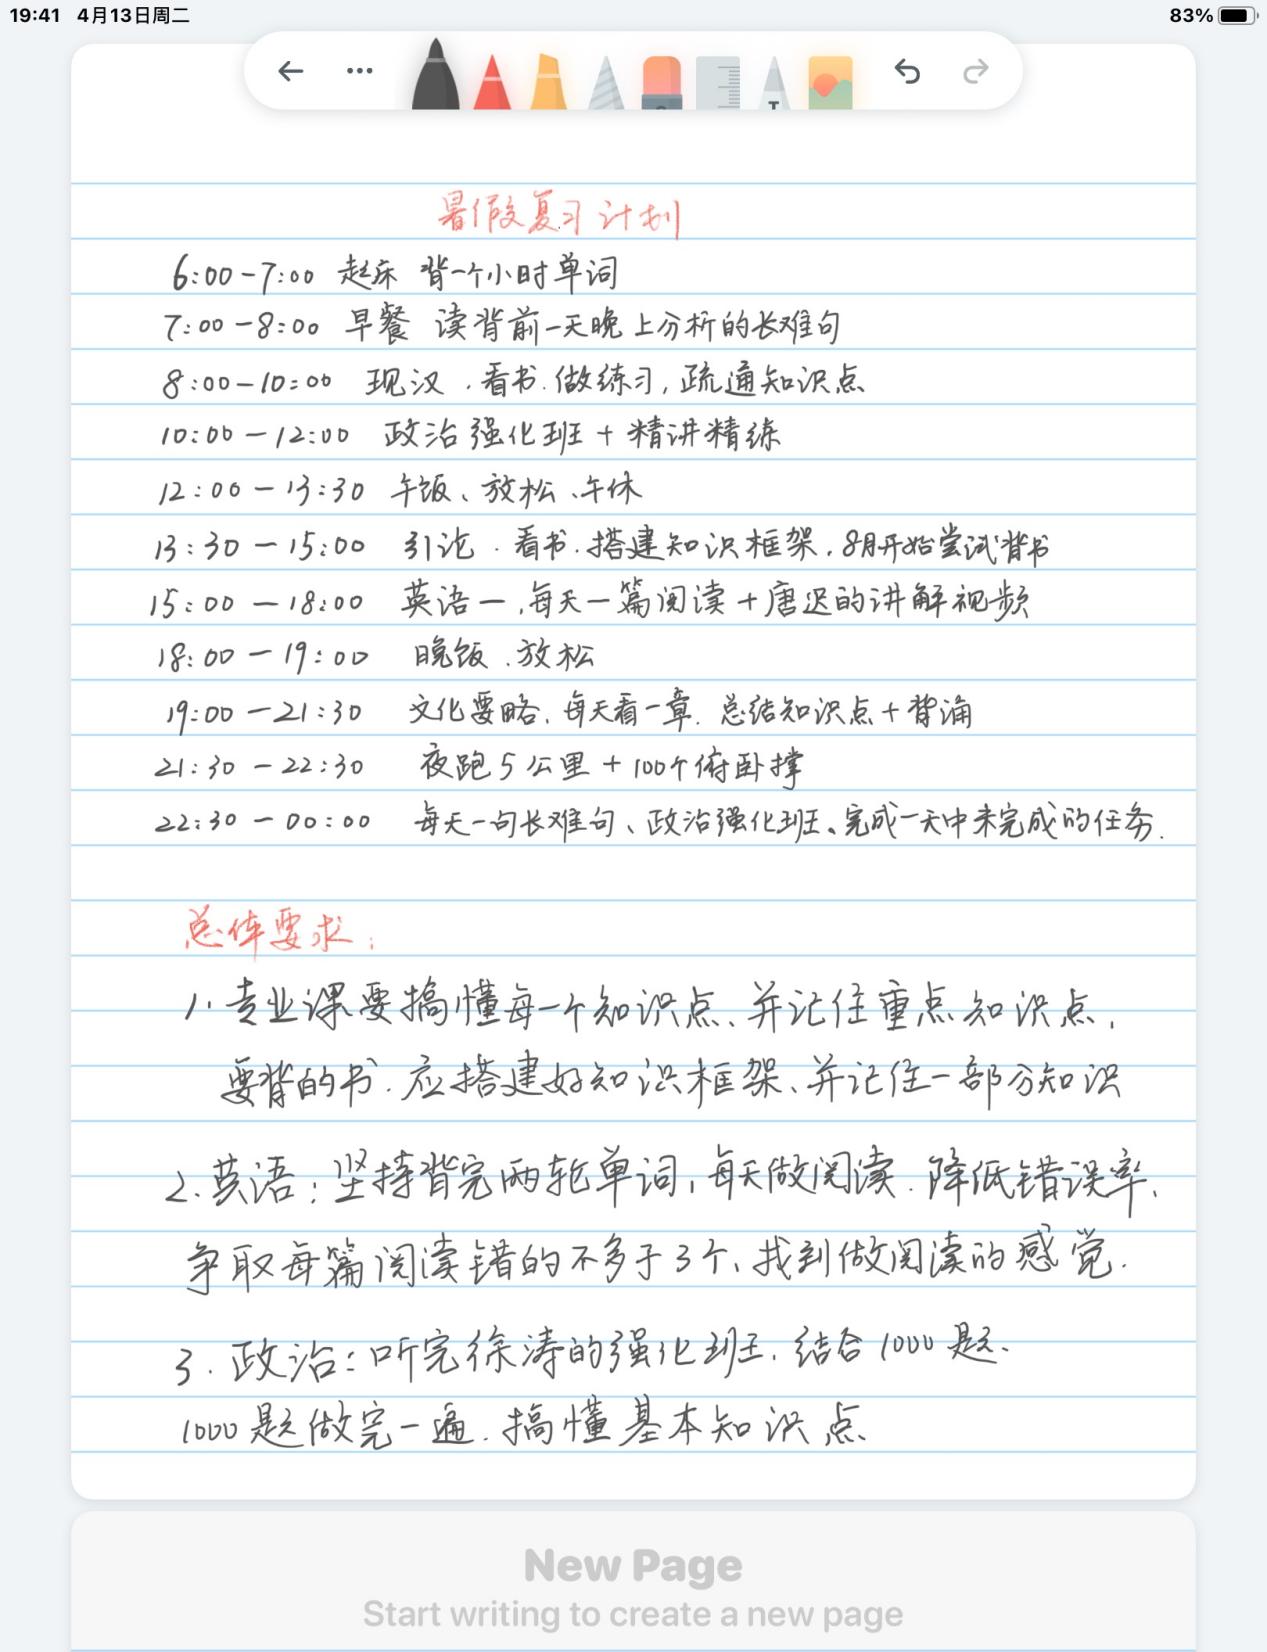 19:41 4月13日周二
83%
T
暑假复习计划
6:00-7:00 起床 背一个小时单词
7:00-8:00 早餐 读背前一天晚上分析的长难句
8:00-10:00 现汉.看书.做练习,疏通知识点
10:00-12:00 政治强化班+精讲精练
12:00-13:30 午饭、放松、午休
13:30-15:00 引论.看书.搭建知识框架,8月开始尝试背书
15:00-18:00 英语一,每天一篇阅读+唐迟的讲解视频
18:00-19:00 晚饭、放松
19:00-21:30 文化要略、每天看一章.总结知识点+背诵
21:30-22:30 夜跑5公里+100个俯卧撑
22:30-00:00 每天一句长难句、政治强化班、完成一天中未完成的任务.
总体要求:
1.专业课要搞懂每一个知识点、并记住重点知识点,
要背的书.应搭建好知识框架、并记住一部分知识
2.英语:坚持背完两轮单词,每天做阅读.降低错误率、
争取每篇阅读错的不多于3个、找到做阅读的感觉.
3.政治:听完徐涛的强化班.结合1000题、
1000题做完一遍.搞懂基本知识点
New Page
Start writing to create a new page